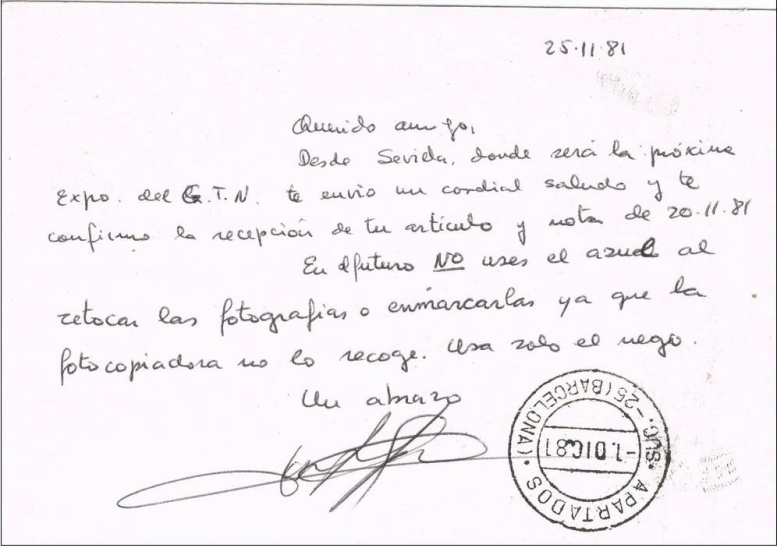 25·11·81
Querido amigo,
Desde Sevilla, donde será la próxima
Expo. del G.T.N. te envio un cordial saludo y te
confirmo la recepción de tu artículo y nota de 20·11·81
En el futuro NO uses el azul al
retocar las fotografias o enmarcarlas ya que la
fotocopiadora no lo recoge. Usa solo el negro.
Un abrazo
SUC.-25 (BARCELONA)
-1.DIC.81
APARTADOS